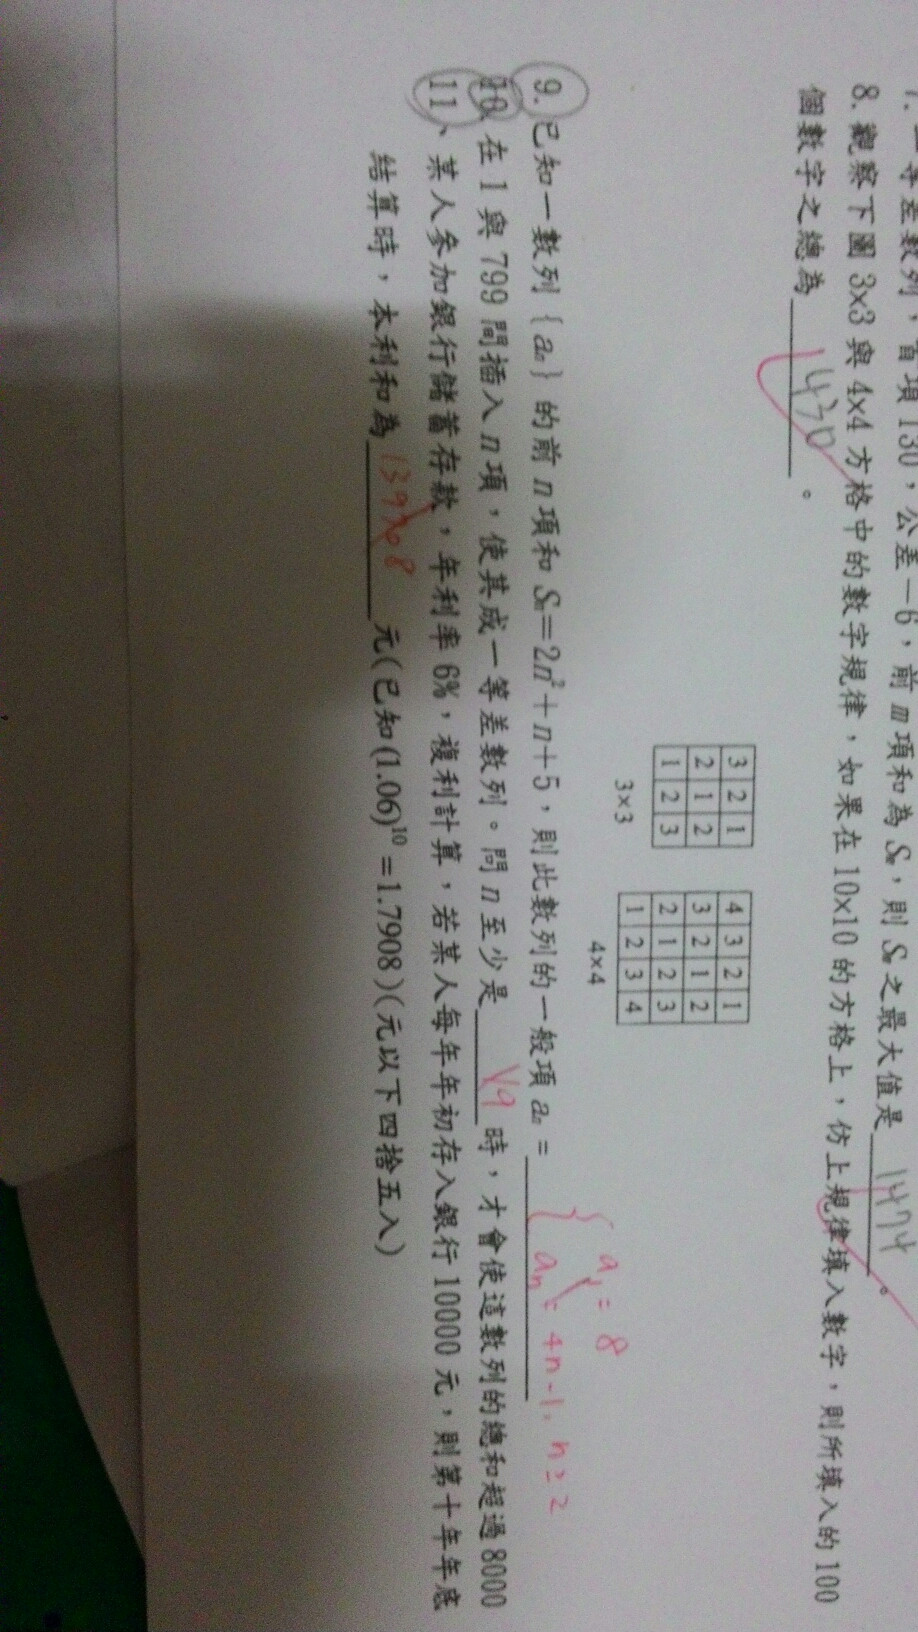 等差數列，首項130，公差－6，前m項和為Sm，則Sm之最大值是1474。
8. 觀察下圖3x3與4x4方格中的數字規律，如果在10x10的方格上，仿上規律填入數字，則所填入的100
個數字之總為1430。
3 2 1
2 1 2
1 2 3
3×3
4 3 2 1
3 2 1 2
2 1 2 3
1 2 3 4
4×4
9. 已知一數列{an}的前n項和Sn=2n²+n+5，則此數列的一般項an=
{ a1 = 8
an = 4n-1, n≥2
10、在1與799間插入n項，使其成一等差數列。問n至少是 19 時，才會使這數列的總和超過8000
11、某人參加銀行儲蓄存款，年利率6%，複利計算，若某人每年年初存入銀行10000元，則第十年年底
結算時，本利和為 元(已知(1.06)¹⁰=1.7908)(元以下四捨五入)